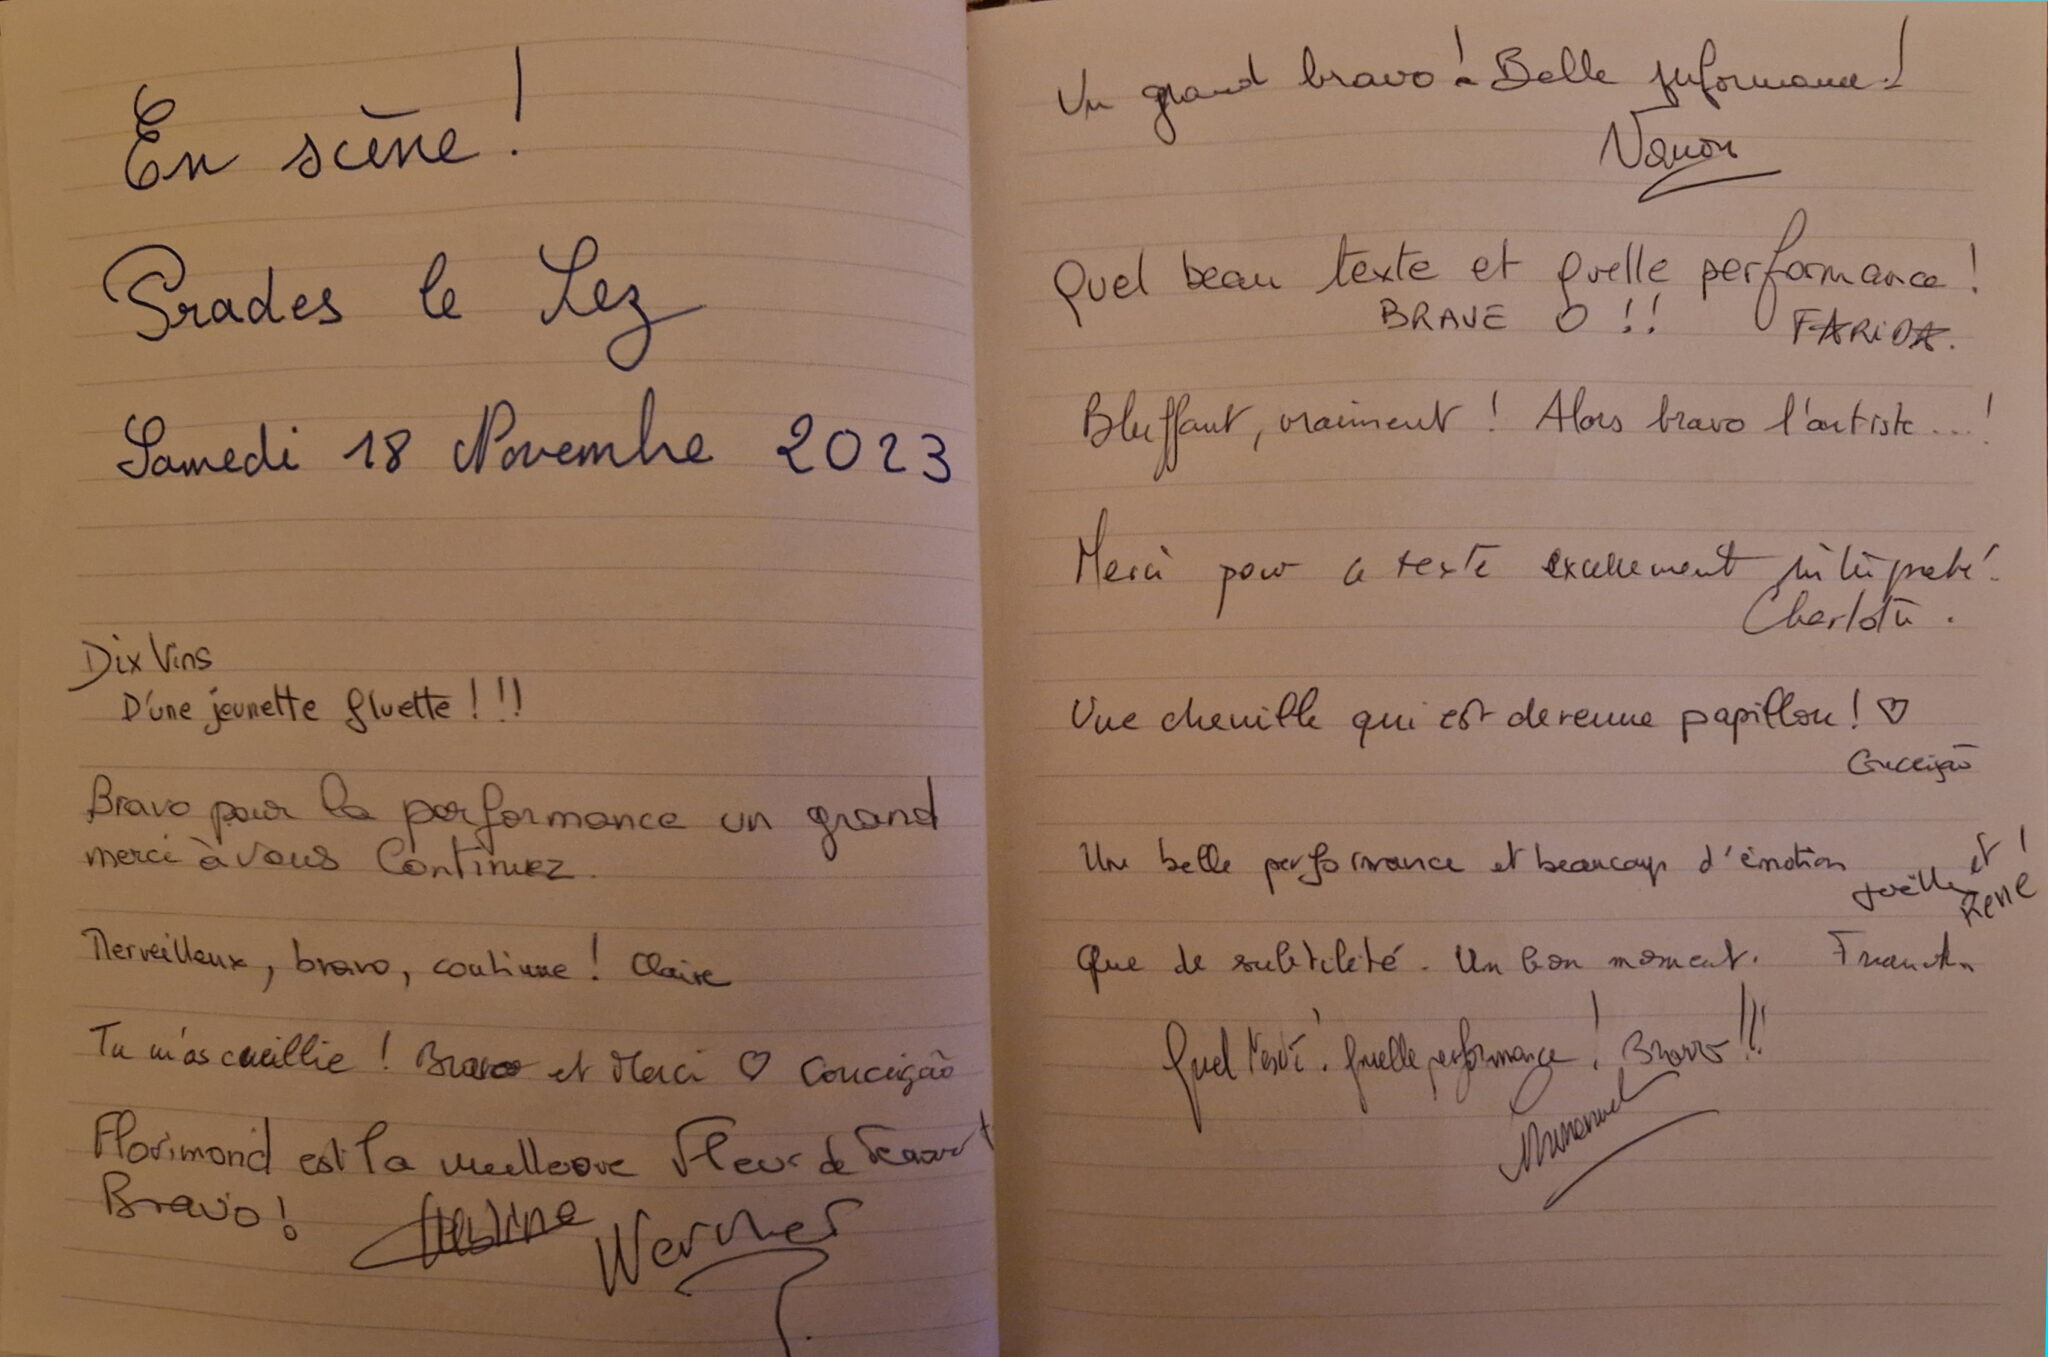 En scène !
Prades le Lez
Samedi 18 Novembre 2023
Dix Vins
D'une jeunette fluette ! ! !
Bravo pour la performance un grand
merci à vous Continuez.
Merveilleux, bravo, continue ! Claire
Tu m'as cueillie ! Bravo et Merci ♡ Conceição
Florimond est la meilleure Fleur de
Bravo ! Werner
Un grand bravo ! Belle performance !
Nanou
Quel beau texte et quelle performance !
BRAVE O ! ! FARIDA.
Bluffant, vraiment ! Alors bravo l'artiste ... !
Merci pour ce texte excellement interprété.
Charlotte.
Une chenille qui est devenue papillon ! ♡
Conceição
Une belle performance et beaucoup d'émotion !
Joëlle et
René
Que de subtilité. Un bon moment.
Quel texte ! Quelle performance ! Bravo !!!
Emmanuel